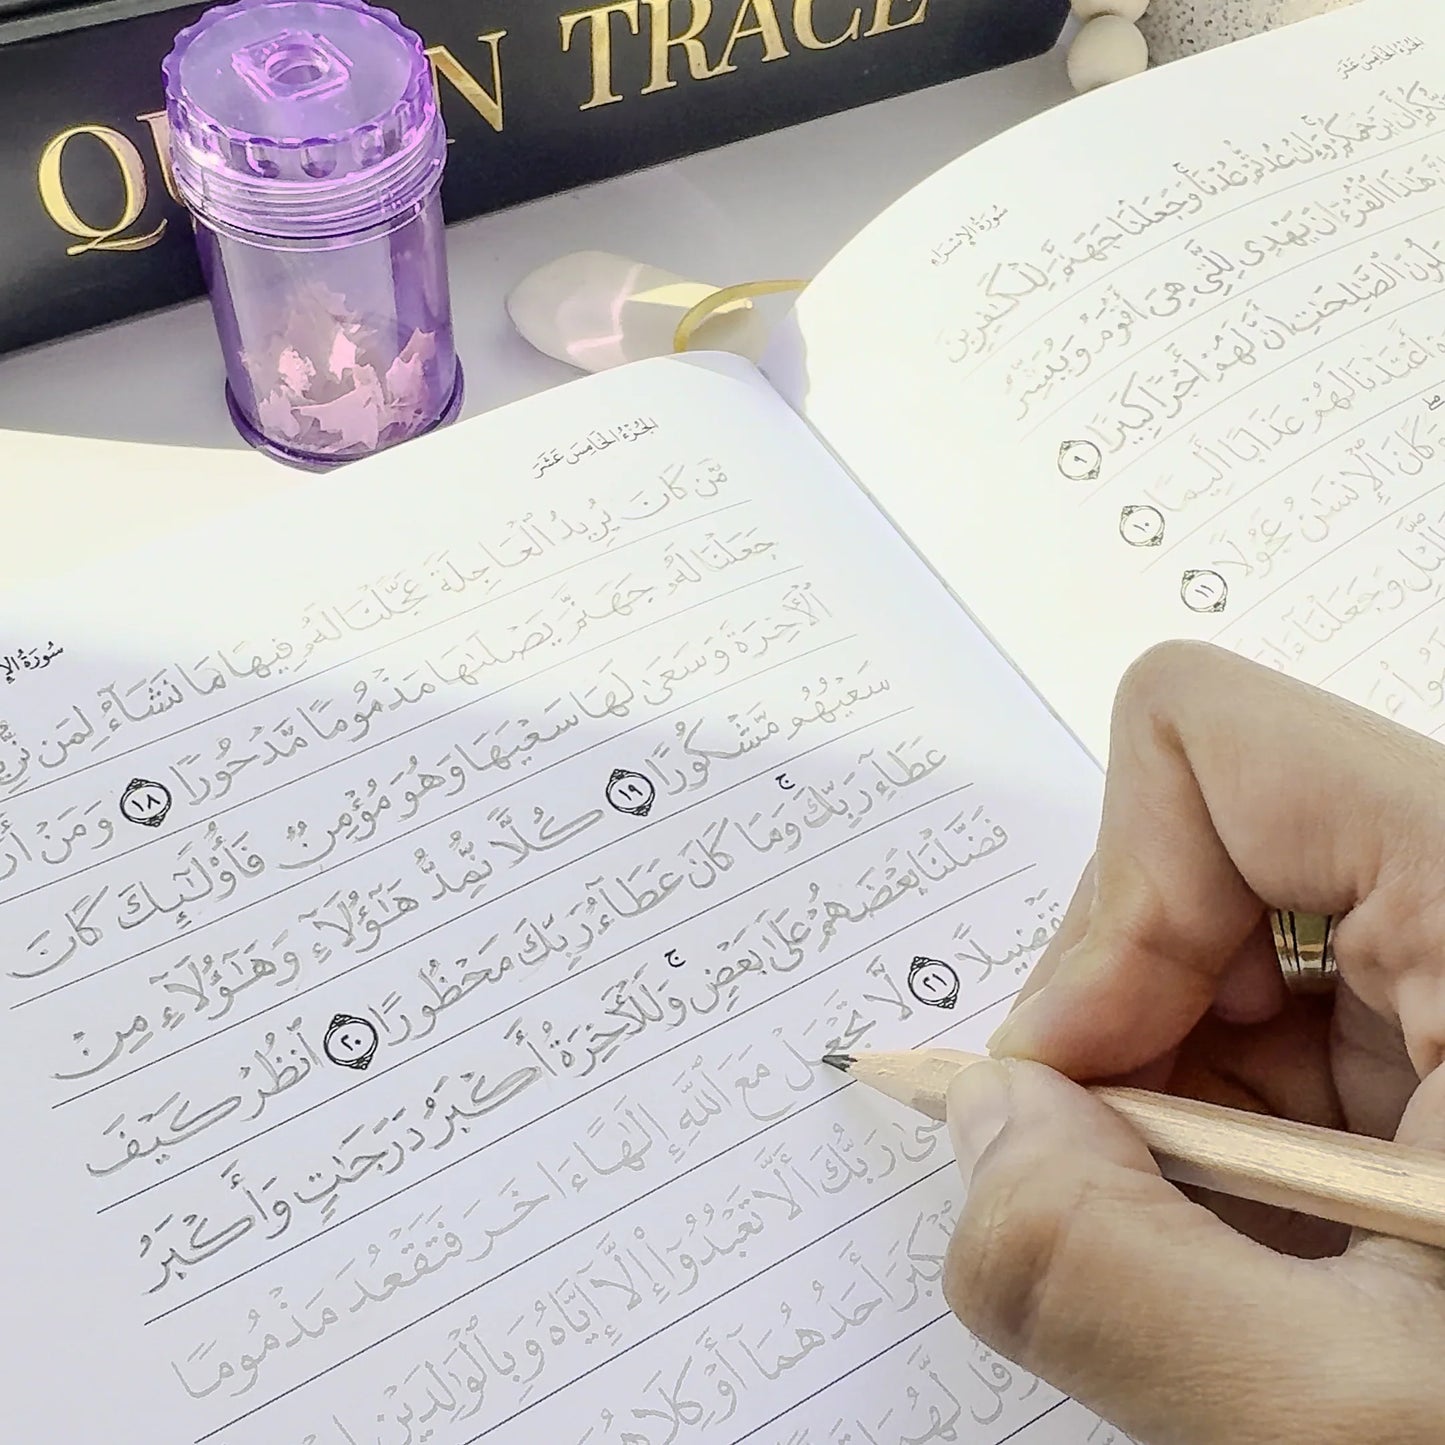 QU N TRACE
الجزء الخامس عشر
سورة الإسراء
جَعَلْنَا جَهَنَّمَ لِلْكَٰفِرِينَ
هَٰذَا ٱلْقُرْءَانَ يَهْدِى لِلَّتِى هِىَ أَقْوَمُ وَيُبَشِّرُ
ٱلصَّٰلِحَٰتِ أَنَّ لَهُمْ أَجْرًا كَبِيرًا ٩
أَعْتَدْنَا لَهُمْ عَذَابًا أَلِيمًا ١٠
وَكَانَ ٱلْإِنسَٰنُ عَجُولًا ١١
وَجَعَلْنَا
الجزء الخامس عشر
سورة
مَّن كَانَ يُرِيدُ ٱلْعَاجِلَةَ عَجَّلْنَا لَهُۥ فِيهَا مَا نَشَآءُ لِمَن
جَعَلْنَا لَهُۥ جَهَنَّمَ يَصْلَىٰهَا مَذْمُومًا مَّدْحُورًا ١٨ وَمَنْ
ٱلْأَخِرَةَ وَسَعَىٰ لَهَا سَعْيَهَا وَهُوَ مُؤْمِنٌ فَأُو۟لَٰٓئِكَ كَانَ
سَعْيُهُم مَّشْكُورًا ١٩ كُلًّا نُّمِدُّ هَٰٓؤُلَآءِ وَهَٰٓؤُلَآءِ مِنْ
عَطَآءِ رَبِّكَ ۚ وَمَا كَانَ عَطَآءُ رَبِّكَ مَحْظُورًا ٢٠ ٱنظُرْ كَيْفَ
فَضَّلْنَا بَعْضَهُمْ عَلَىٰ بَعْضٍ ۚ وَلَلْأَخِرَةُ أَكْبَرُ دَرَجَٰتٍ وَأَكْبَرُ
تَفْضِيلًا ٢١ لَّا تَجْعَلْ مَعَ ٱللَّهِ إِلَٰهًا ءَاخَرَ فَتَقْعُدَ مَذْمُومًا
رَبُّكَ أَلَّا تَعْبُدُوٓا۟ إِلَّآ إِيَّاهُ وَبِٱلْوَٰلِدَيْنِ
ٱلْكِبَرَ أَحَدُهُمَآ أَوْ كِلَاهُمَا
وَقُل لَّهُمَا